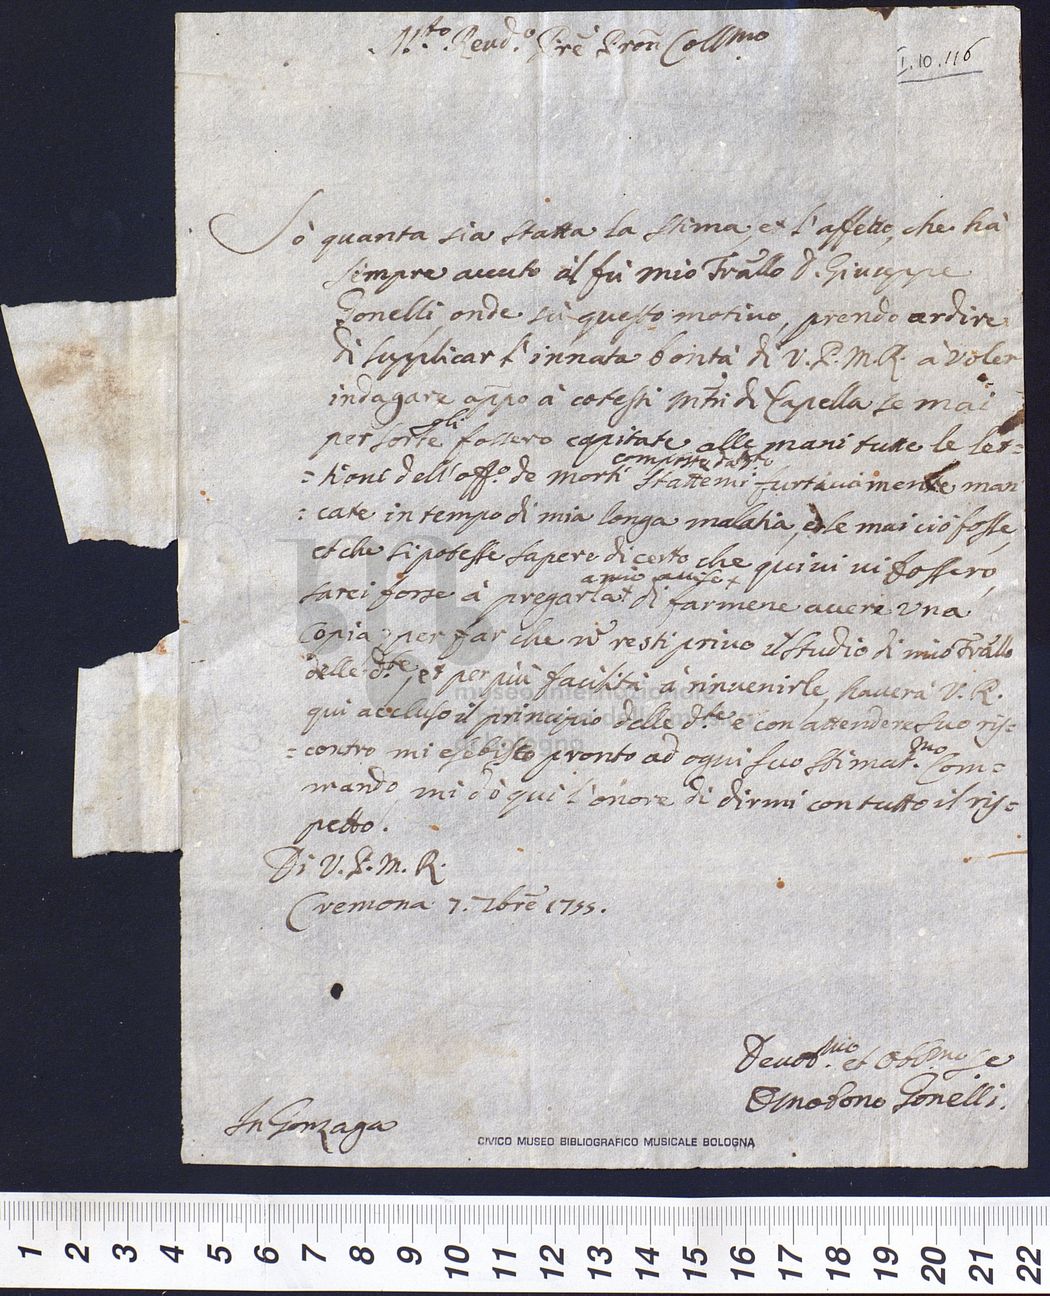 M.to Rev.do Pre Pron Coll.mo
I.10.116
Sò quanta sia statta la stima, et l'affetto, che hà
sempre avuto il fù mio Frallo D. Giuseppe
Gonelli, onde sù questo motivo, prendo ardire
di supplicar l'innata bontà di V. P. M. R. à voler
indagare appo à cotesti Mtri di Capella se mai
per sorte gli fossero capitate alle mani tutte le let=
=tioni dell'off.o de morti composte dal sud.o stattemi furtivamente man
=cate in tempo di mia longa malatia, e se mai ciò fosse,
et che si potesse sapere di certo che quivi vi fossero,
sarei forse à pregarla a mio aviso di farmene avere una
Copia, per far che nō resti privo il studio di mio Frallo
delle d.te, et per più facilità à rinvenirle, haverà V. R.
qui accluso il principio delle d.te e con attendere suo ris=
=contro mi esebisco pronto ad ogni suo stimat.mo Com=
mando, mi dò qui l'onore di dirmi con tutto il ris=
petto.
Di V. P. M. R.
Cremona 7. 7bre 1755.
Devot.mo et Obl.mo Se
Omobono Gonelli.
In Gonzaga
CIVICO MUSEO BIBLIOGRAFICO MUSICALE BOLOGNA
museo internazionale
e biblioteca della musica
di bologna
1 2 3 4 5 6 7 8 9 10 11 12 13 14 15 16 17 18 19 20 21 22